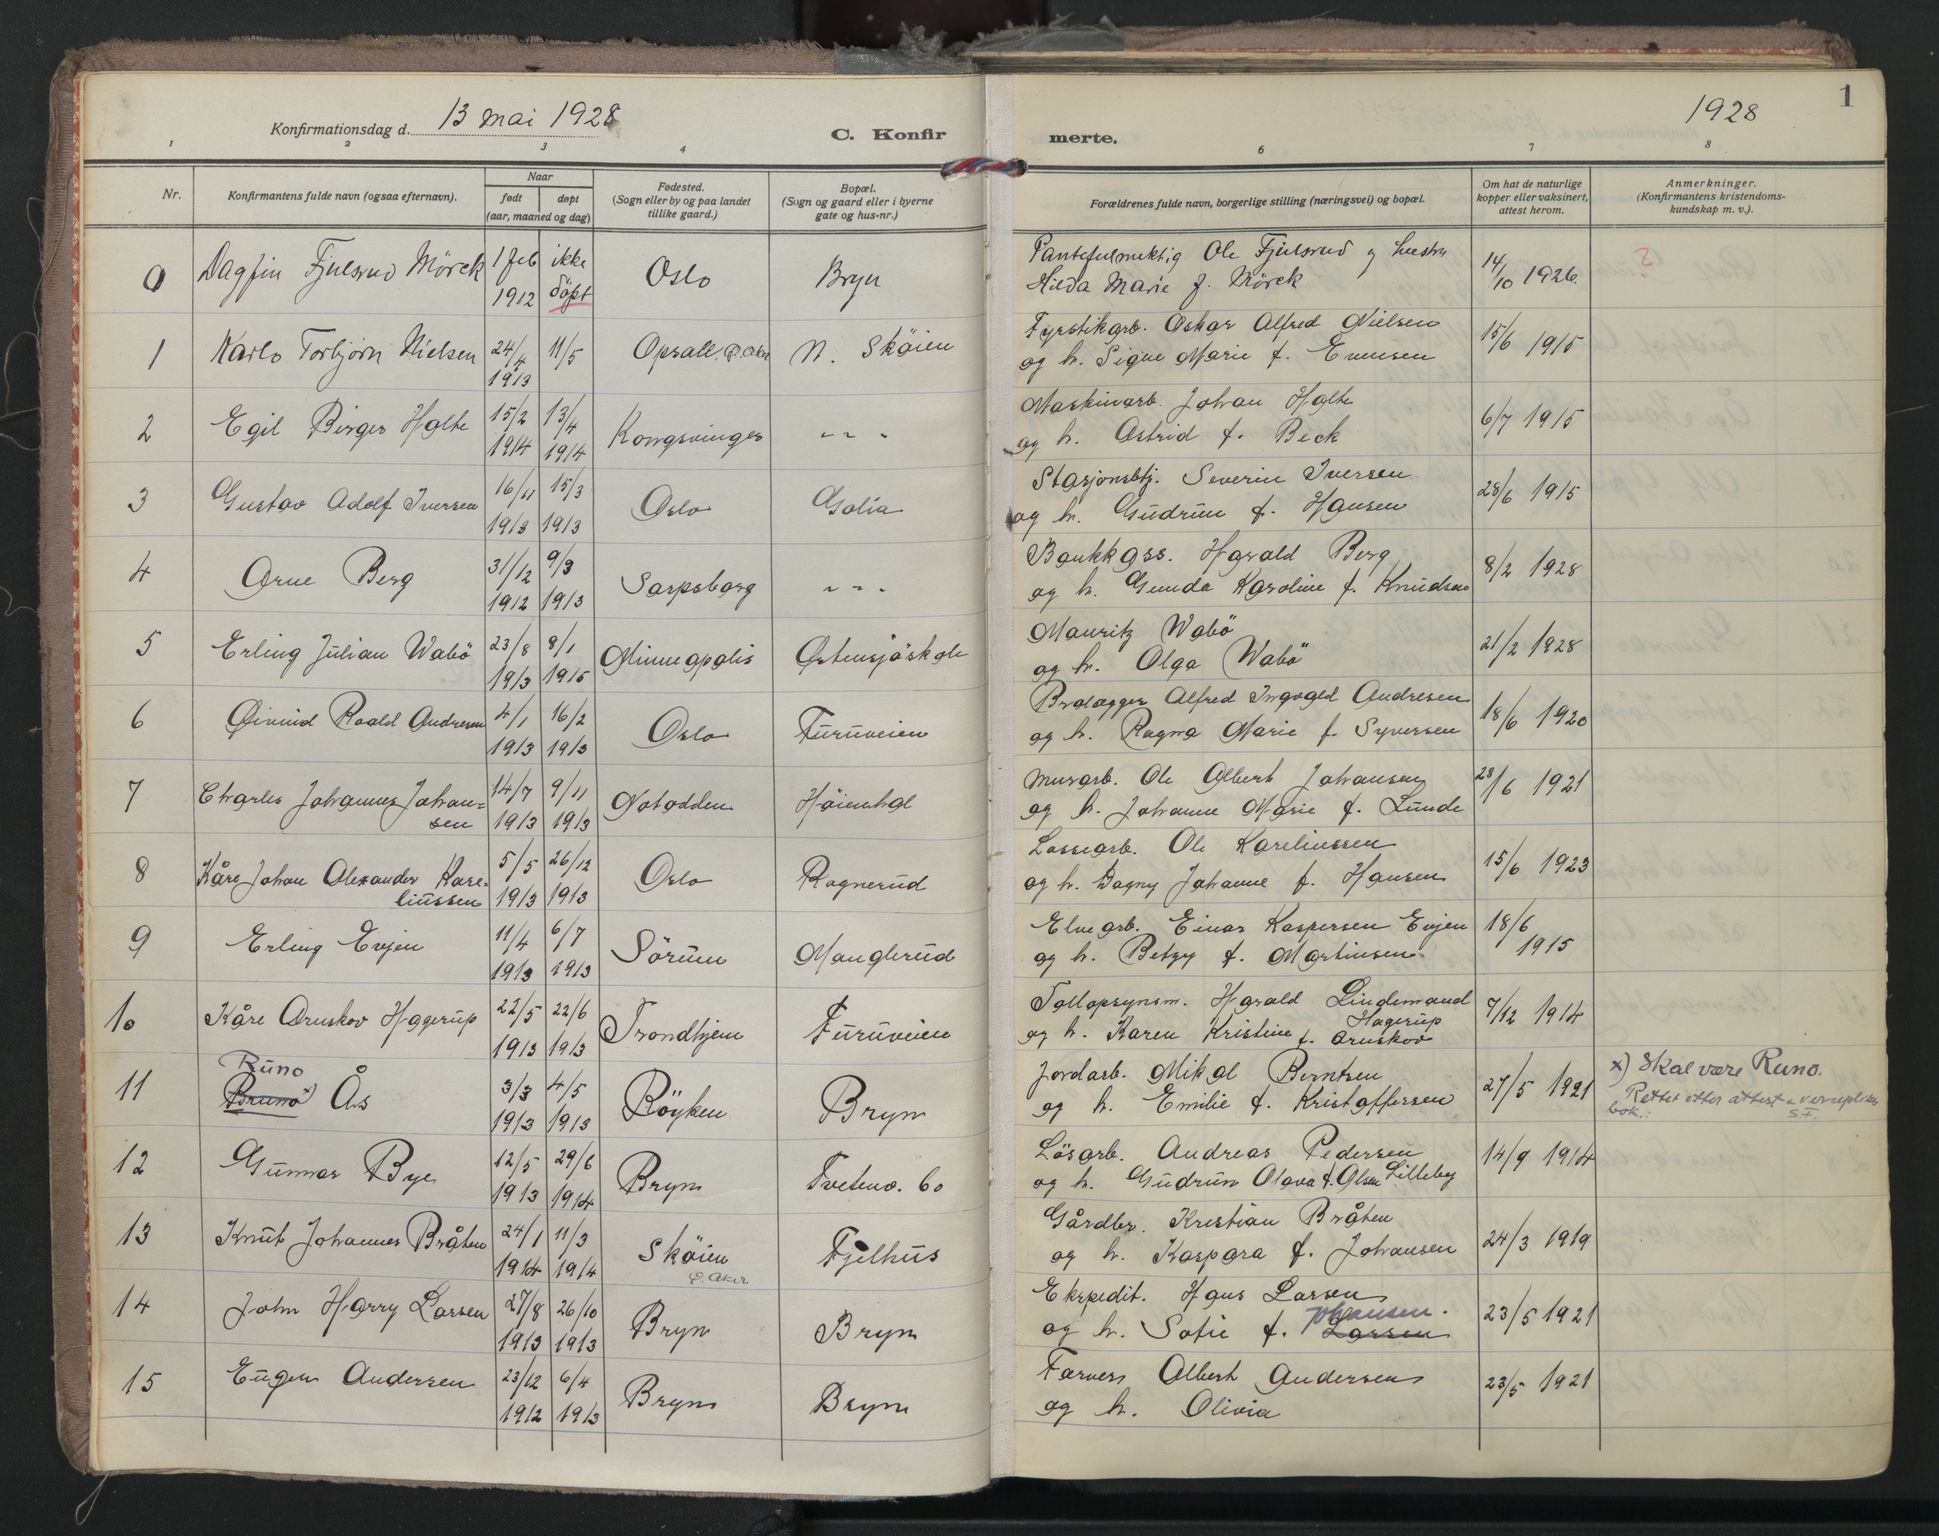 Konfirmationsdag d. 13 mai 1928
C. Konfir
merte.
1928
1
1 2 3 4
6 7 8
Nr.
Konfirmantens fulde navn (ogsaa efternavn).
Naar
født
døpt
(aar, maaned og dag)
Fødested.
(Sogn eller by og paa landet
tillike gaard.)
Bopæl.
(Sogn og gaard eller i byerne
gate og hus-nr.)
Forældrenes fulde navn, borgerlige stilling (næringsvei) og bopæl.
Om hat de naturlige
kopper eller vaksinert,
attest herom.
Anmerkninger.
(Konfirmantens kristendoms-
kundskap m. v.).
0 Dagfin Fjulsrud Mörck 1 feb 1912 ikke döpt Oslo Bryn
Pantefulmektig Ole Fjulsrud og hustru
Hilda Marie f. Mörck 14/10 1926. ?
1 Karlo Torbjørn Nielsen 24/4 1913 11/5 Opsall, Ø. Aker N. Skøien
Fyrstikarb. Oskar Alfred Nielsen
og h. Signe Marie f. Evensen 15/6 1915
2 Egil Birger Holte 15/2 1914 13/4 1914 Kongsvinger - - -
Maskinarb. Johan Holte
og h. Astrid f. Beck 6/7 1915
3 Gustav Adolf Iversen 16/11 1913 15/3 1913 Oslo Golia
Stasjonsbtj. Severin Iversen
og h. Gudrun f. Hansen 28/6 1915
4 Arne Berg 31/12 1912 9/3 1913 Sarpsborg - - -
Bankkass. Harald Berg
og h. Gunda Karoline f. Knudsen 8/2 1928
5 Erling Julian Wabö 23/8 1913 8/1 1915 Minneapolis Østensjöskole
Mauritz Wabö
og h. Olga Wabö 21/2 1928
6 Øivind Roald Andresen 4/1 1913 16/2 1913 Oslo Furuveien
Brolægger Alfred Ingvald Andresen
og h. Ragna Marie f. Syversen 18/6 1920
7 Charles Johannes Johan=
sen 14/7 1913 9/11 1913 Notodden Høienhal
Murarb. Ole Albert Johansen
og h. Johanne Marie f. Lunde 28/6 1921
8 Kåre Johan Alexander Kare=
liussen 5/5 1913 26/12 1913 Oslo Rognerud
Lossearb. Ole Kareliussen
og h. Dagny Johanne f. Hansen 15/6 1923
9 Erling Evjen 11/4 1913 6/7 1913 Sörum Manglerud
Elvearb. Einar Kaspersen Evjen
og h. Betzy f. Martinsen 18/6 1915
10 Kåre Aruskov Hagerup 22/5 1913 22/6 1913 Trondhjem Furuveien
Tollopsynsm. Harald Lindemand
Hagerup
og h. Karen Kristine f. Aruskov 7/12 1914
Runo
11 Bruno x) Ås 3/3 1913 4/5 1913 Röyken Bryn
Jordarb. Mikal Berntsen
og h. Emilie f. Kristoffersen 27/5 1921
x) Skal være Runo.
Rettet etter attest
bok. S.F.
12 Gunnar Bye 12/5 1913 29/6 1914 Bryn Tvetenv. 60
Lösarb. Andreas Pedersen
og h. Gudrun Olava f. Olsen Lilleby 14/9 1914
13 Knut Johannes Bråten 24/1 1914 11/3 1914 Skøien Ø. Aker Fjelhus
Gårdbr. Kristian Bråten
og h. Kaspara f. Johansen 24/3 1919
14 John Harry Larsen 27/8 1913 26/10 1913 Bryn Bryn
Ekspedit. Hans Larsen
og h. Sofie f. Larsen Johansen. 23/5 1921
15 Eugen Andersen 23/12 1912 6/4 1913 Bryn Bryn
Farver Albert Andersen
og h. Olivia 23/5 1921